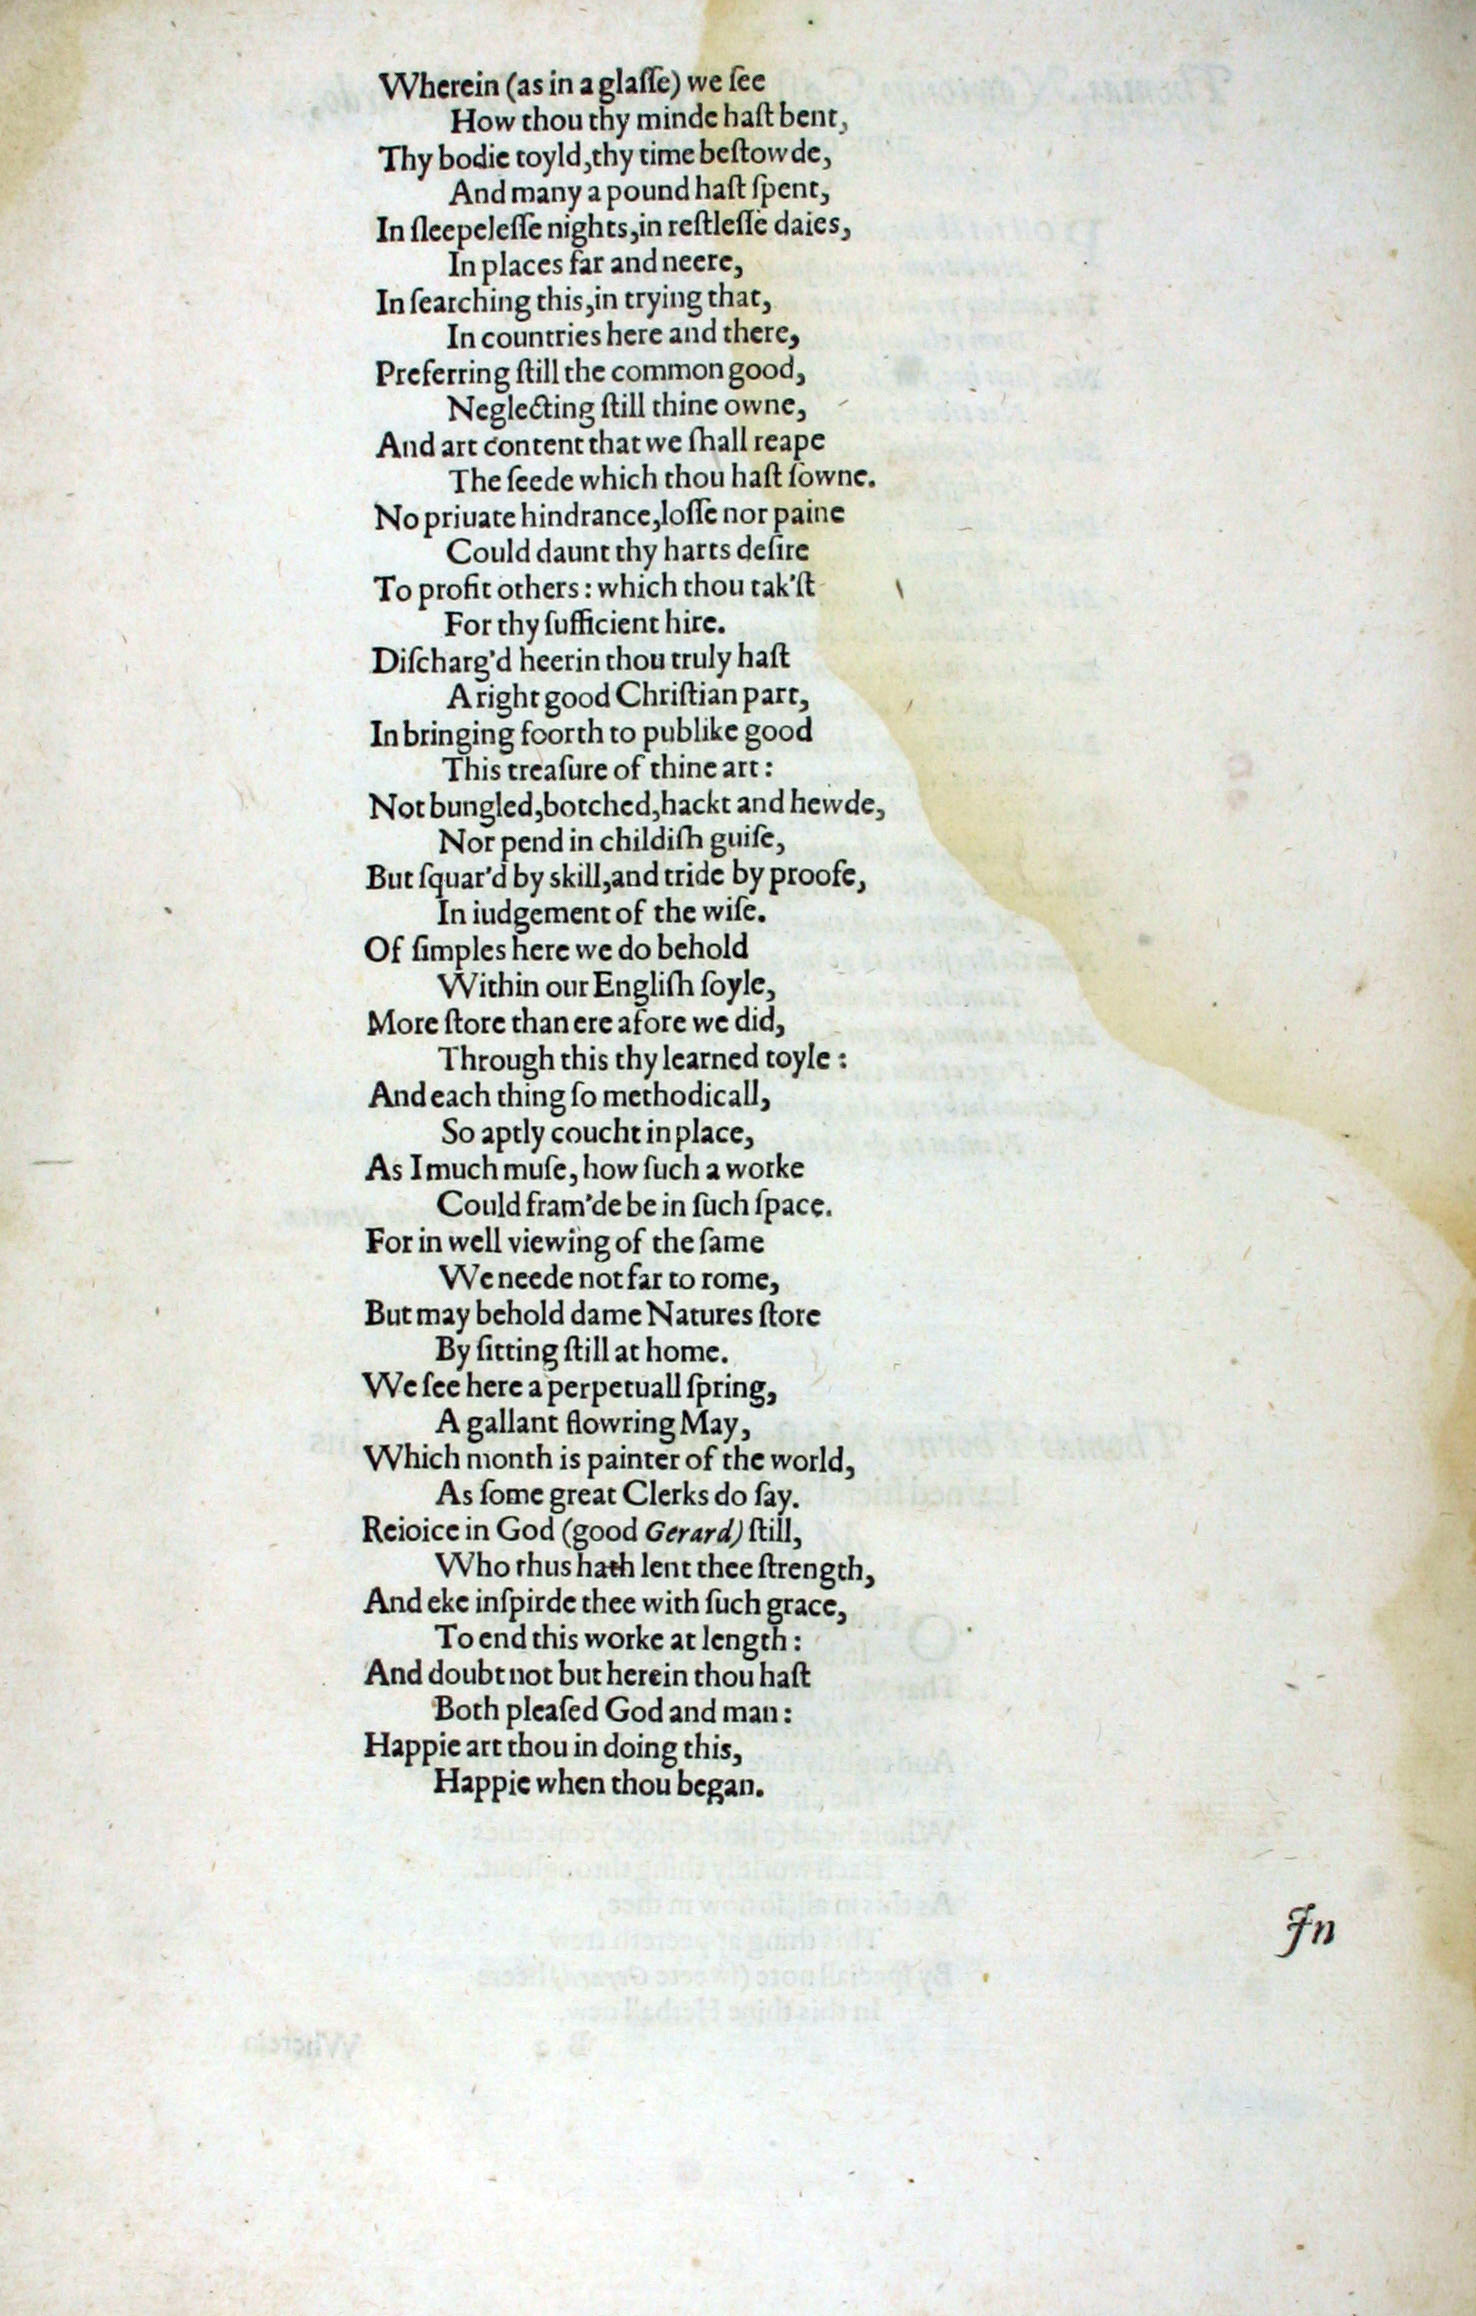 Wherein (as in a glaſſe) we ſee
How thou thy minde haſt bent,
Thy bodie toyld, thy time beſtowde,
And many a pound haſt ſpent,
In ſleepeleſſe nights, in reſtleſſe daies,
In places far and neere,
In ſearching this, in trying that,
In countries here and there,
Preferring ſtill the common good,
Neglecting ſtill thine owne,
And art content that we ſhall reape
The ſeede which thou haſt ſowne.
No priuate hindrance, loſſe nor paine
Could daunt thy harts deſire
To profit others: which thou tak'ſt
For thy ſufficient hire.
Diſcharg'd heerin thou truly haſt
A right good Chriſtian part,
In bringing foorth to publike good
This treaſure of thine art:
Not bungled, botched, hackt and hewde,
Nor pend in childiſh guiſe,
But ſquar'd by skill, and tride by proofe,
In iudgement of the wiſe.
Of ſimples here we do behold
Within our Engliſh ſoyle,
More ſtore than ere afore we did,
Through this thy learned toyle:
And each thing ſo methodicall,
So aptly coucht in place,
As I much muſe, how ſuch a worke
Could fram'de be in ſuch ſpace.
For in well viewing of the ſame
We neede not far to rome,
But may behold dame Natures ſtore
By ſitting ſtill at home.
We ſee here a perpetuall ſpring,
A gallant flowring May,
Which month is painter of the world,
As ſome great Clerks do ſay.
Reioice in God (good Gerard) ſtill,
Who thus hath lent thee ſtrength,
And eke inſpirde thee with ſuch grace,
To end this worke at length:
And doubt not but herein thou haſt
Both pleaſed God and man:
Happie art thou in doing this,
Happie when thou began.
In